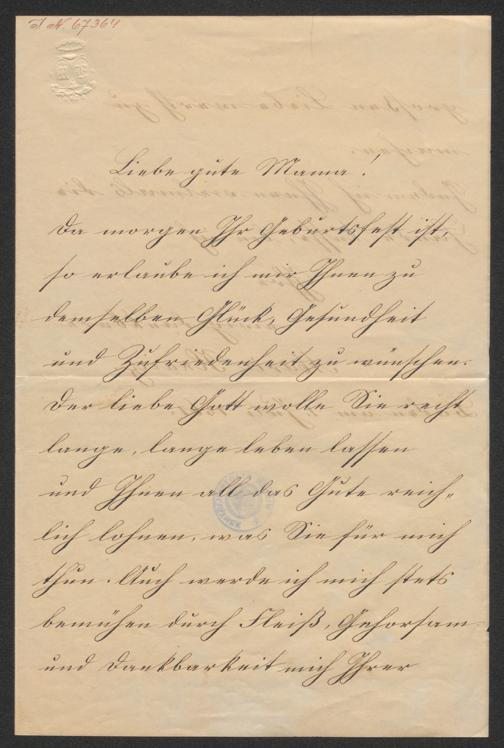 I. N. 67364
Liebe gute Mama!
Da morgen Ihr Geburtsfest ist,
so erlaube ich mir Ihnen zu
demselben Glück, Gesundheit
und Zufriedenheit zu wünschen.
Der liebe Gott wolle Sie recht
lange, lange leben lassen
und Ihnen all das Gute reich-
lich lohnen, was Sie für mich
thun. Auch werde ich mich stets
bemühen durch Fleiß, Gehorsam
und Dankbarkeit mich Ihrer